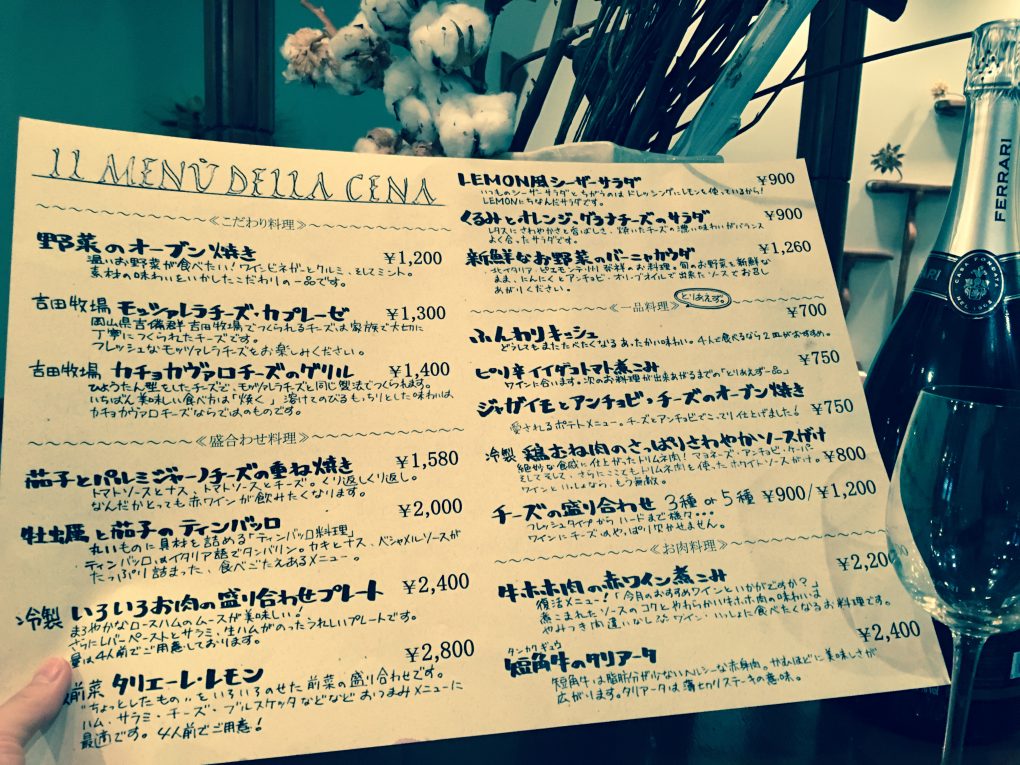 IL MENÙ DELLA CENA
≪こだわり料理≫
野菜のオーブン焼き ¥1,200
温いお野菜が食べたい!ワインビネガーとクルミ、そしてミント。
素材の味わいをいかしたこだわりの一品です。
吉田牧場 モッツァレラチーズ・カプレーゼ ¥1,300
岡山県吉備群吉田牧場でつくられるチーズは家族で大切に
丁寧につくられたチーズです。
フレッシュなモッツァレラチーズをお楽しみください。
吉田牧場 カチョカヴァロチーズのグリル ¥1,400
ひょうたん型をしたチーズで、モッツァレラチーズと同じ製法でつくられます。
いちばん美味しい食べ方は「焼く」 溶けてのびるもっちりとした味わいは
カチョカヴァロチーズならではのものです。
≪盛合わせ料理≫
茄子とパルミジャーノチーズの重ね焼き ¥1,580
トマトソースとナス、トマトソースとチーズ。くり返しくり返し。
なんだかとっても赤ワインが飲みたくなります。
牡蠣と茄子のティンバッロ ¥2,000
丸いものに具材を詰める「ティンバッロ料理」
ティンバッロはイタリア語でタンバリン。カキとナス、ベシャメルソースが
たっぷり詰まった、食べごたえあるメニュー。
冷製 いろいろお肉の盛り合わせプレート ¥2,400
まろやかなロースハムのムースが美味しい!
さらにレバーペーストとサラミ、生ハムがのったうれしいプレートです。
量は4人前でご用意しております。
前菜 タリエーレ・レモン ¥2,800
"ちょっとしたもの"をいろいろのせた前菜の盛り合わせです。
ハム・サラミ・チーズ・ブルスケッタなどなど おつまみメニューに
最適です。4人前でご用意!
LEMON風シーザーサラダ ¥900
いつものシーザーサラダとちがうのはドレッシングにレモンを使っているから!
LEMONにちなんだサラダです。
くるみとオレンジ、グラナチーズのサラダ ¥900
レタスにさわやかさと香ばしさ、焼いたチーズの濃い味わいがバランス
よく合ったサラダです。
新鮮なお野菜のバーニャカウダ ¥1,260
北イタリア・ピエモンテ州発祥のお料理。旬のお野菜を新鮮な
まま、にんにくとアンチョビ・オリーブオイルで出来たソースでお召し
あがりください。
≪一品料理≫ とりあえず。
ふんわりキッシュ ¥700
どうしてもまたたべたくなるあったかい味わい。4人で食べるなら2皿がおすすめ。
ピリ辛イイダコトマト煮こみ ¥750
ワインに合います。次のお料理が出来あがるまでの「とりあえず一品」
ジャガイモとアンチョビ・チーズのオーブン焼き ¥750
愛されるポテトメニュー。チーズとアンチョビでこってり仕上げました!
冷製 鶏むね肉のさっぱりさわやかソースがけ ¥800
絶妙な食感に仕上がったトリムネ肉!マヨネーズ・アンチョビ・ケーパー
そしてそして、さらにここでもトリムネ肉を使ったホワイトソースがけ。
ワインといっしょなら、もう無敵。
チーズの盛り合わせ 3種 or 5種 ¥900/¥1,200
フレッシュタイプからハードまで様々・・・
ワインにチーズはやっぱり欠かせません。
≪お肉料理≫
牛ホホ肉の赤ワイン煮こみ ¥2,200
復活メニュー!「今月のおすすめワインといかがですか?」
煮こまれたソースのコクとやわらかい牛ホホ肉の味わいは
やみつき間違いなしなワインといっしょに食べたくなるお料理です。
タンカクギュウ
短角牛のタリアータ ¥2,400
短角牛は脂肪分が少ないヘルシーな赤身肉。かむほどに美味しさが
広がります。タリアータは薄切りステーキの意味。
FERRARI